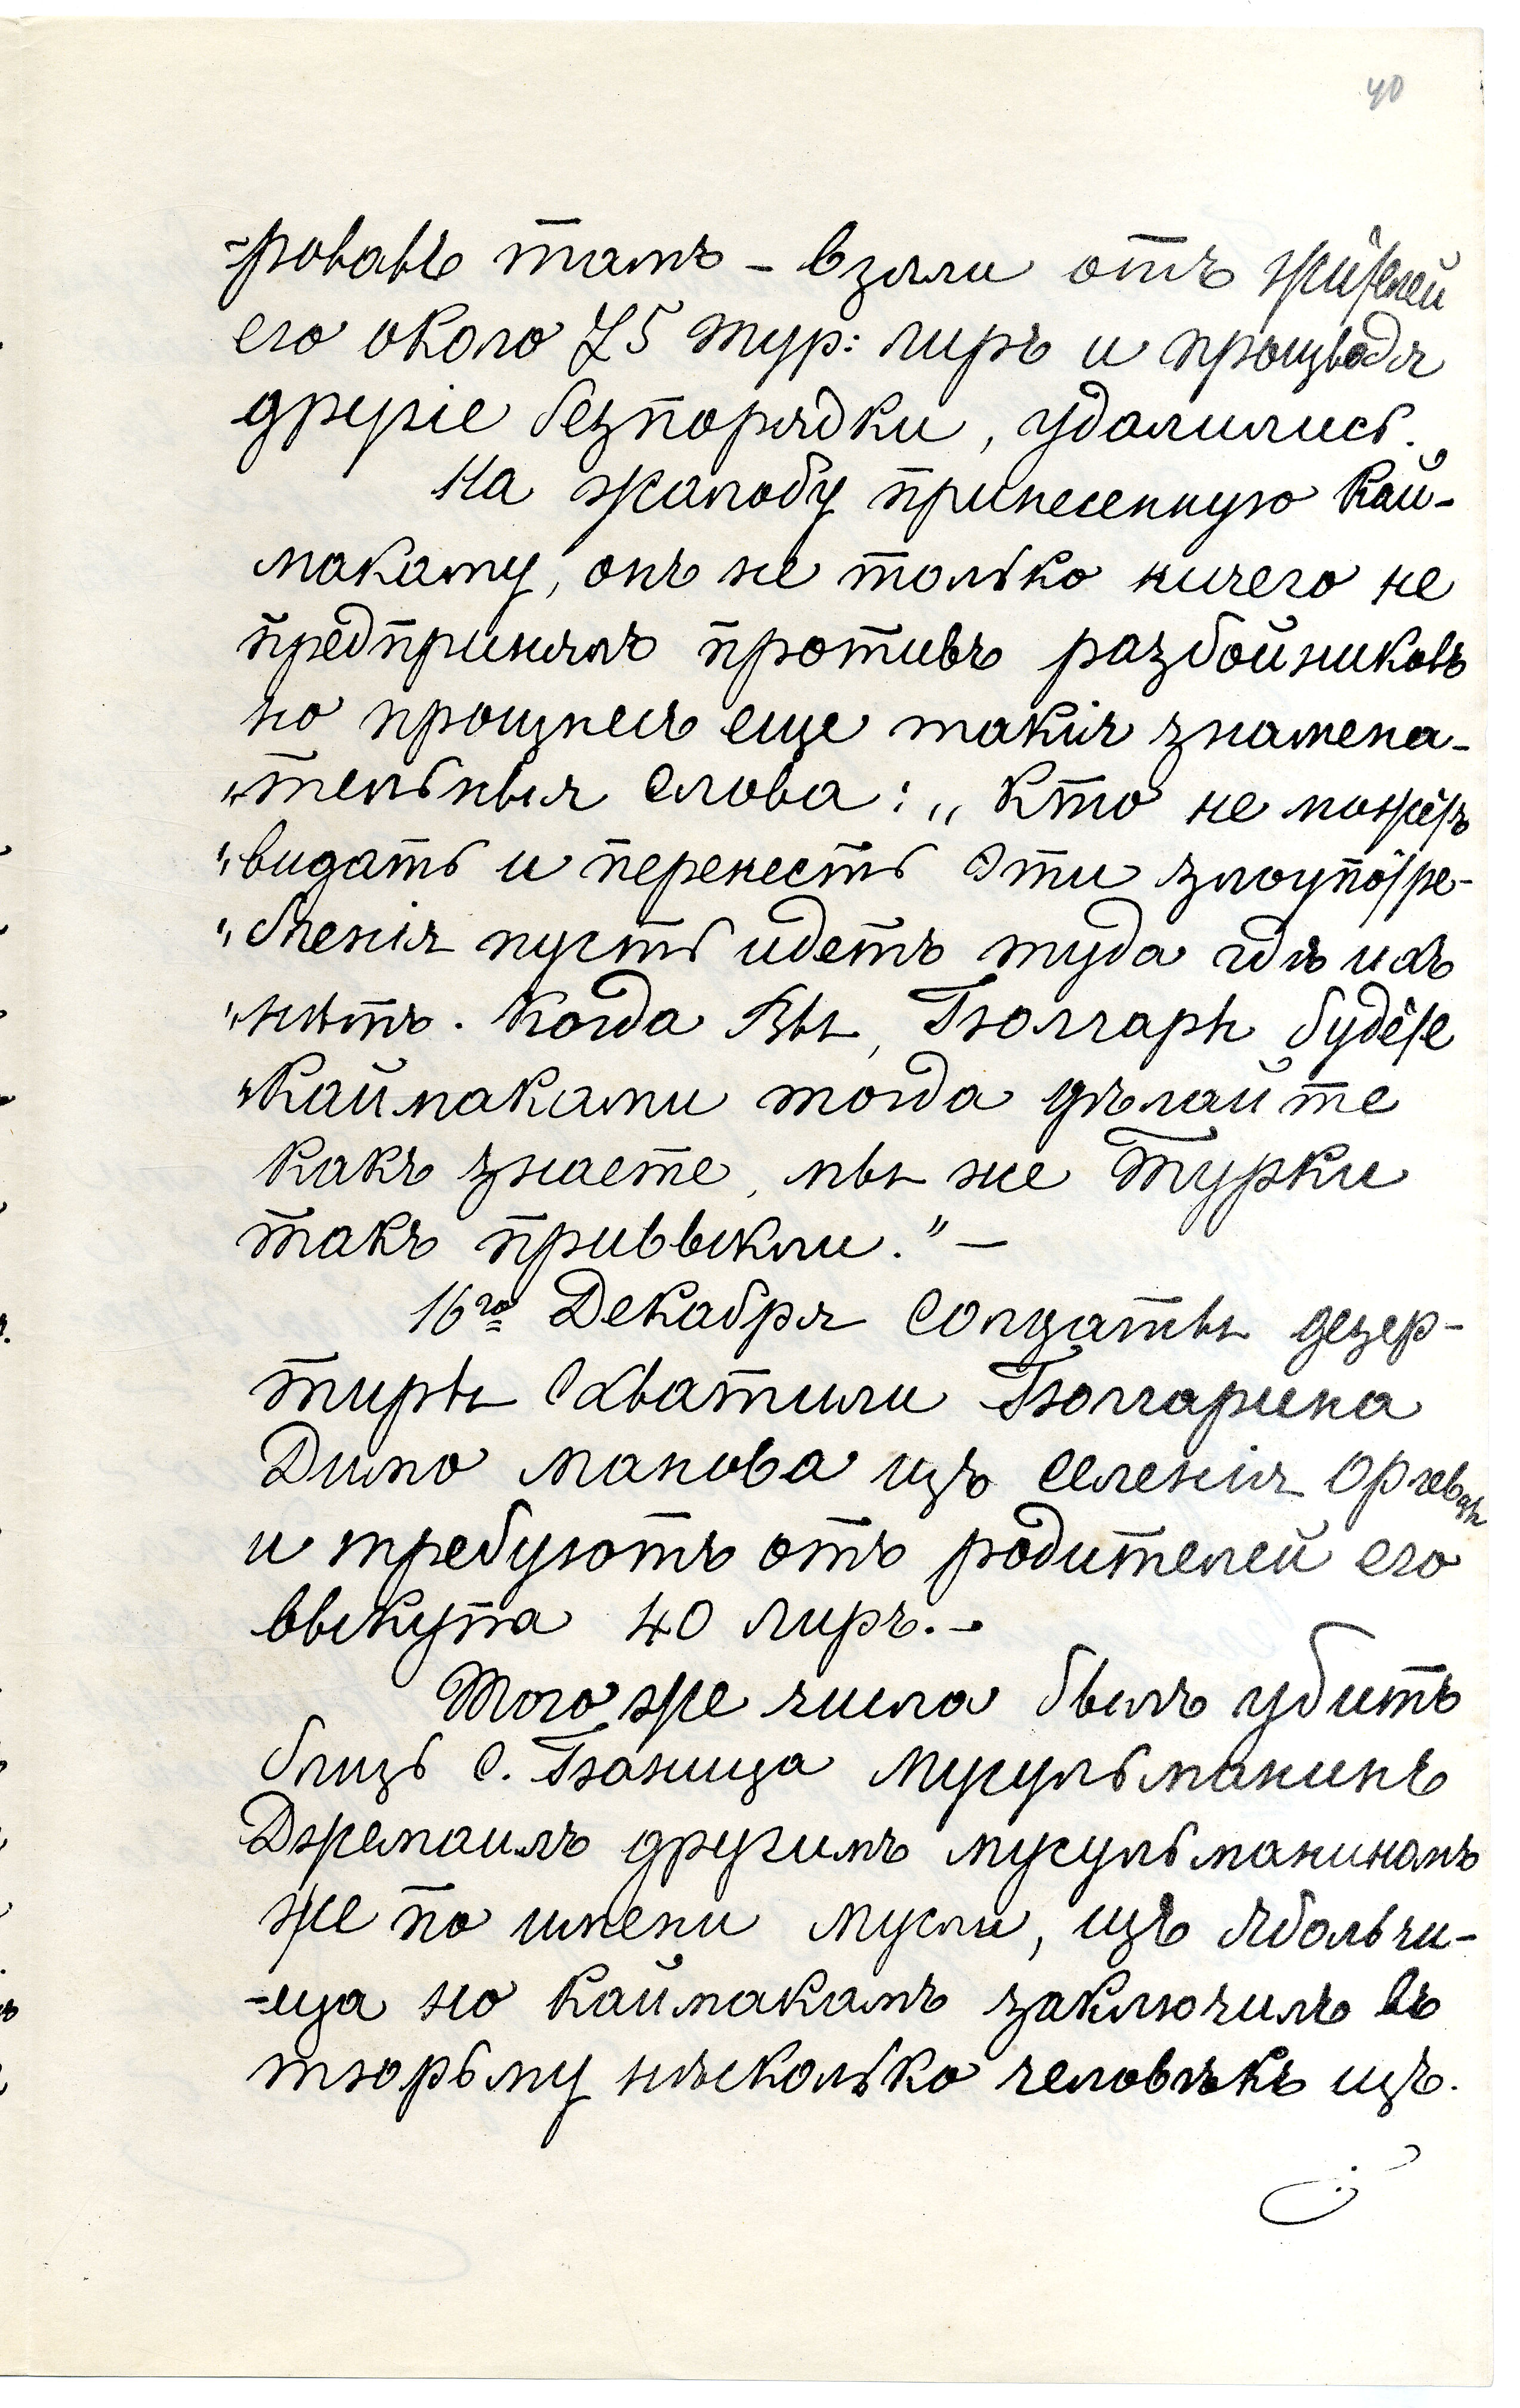 40
-ровавъ тамъ - взяли отъ жителей
его около 75 тур: лиръ и производя
другіе безпорядки, удалились.
На жалобу принесенную Кай-
макаму, онъ не только ничего не
предпринялъ противъ разбойниковъ
но произнесъ еще такія знамена-
"тельныя слова: „Кто не можетъ
"видать и перенесть эти злоупотре-
"бленія пусть идетъ туда гдѣ ихъ
"нѣтъ. Когда Вы, Болгары будете
"Каймаками тогда дѣлайте
какъ знаете, мы же Турки
такъ привыкли."—
16го Декабря Солдаты дезер-
тиры схватили Болгарина
Димо Манова изъ селенія
и требуютъ отъ родителей его
выкупа 40 лиръ.-
Того же числа былъ убитъ
близь с. Баница Мусульманинъ
Джемаилъ другимъ мусульманиномъ
же по имени Мусли, изъ Яболчи-
-ща но Каймакамъ заключилъ въ
тюрьму нѣсколько человѣкъ изъ.